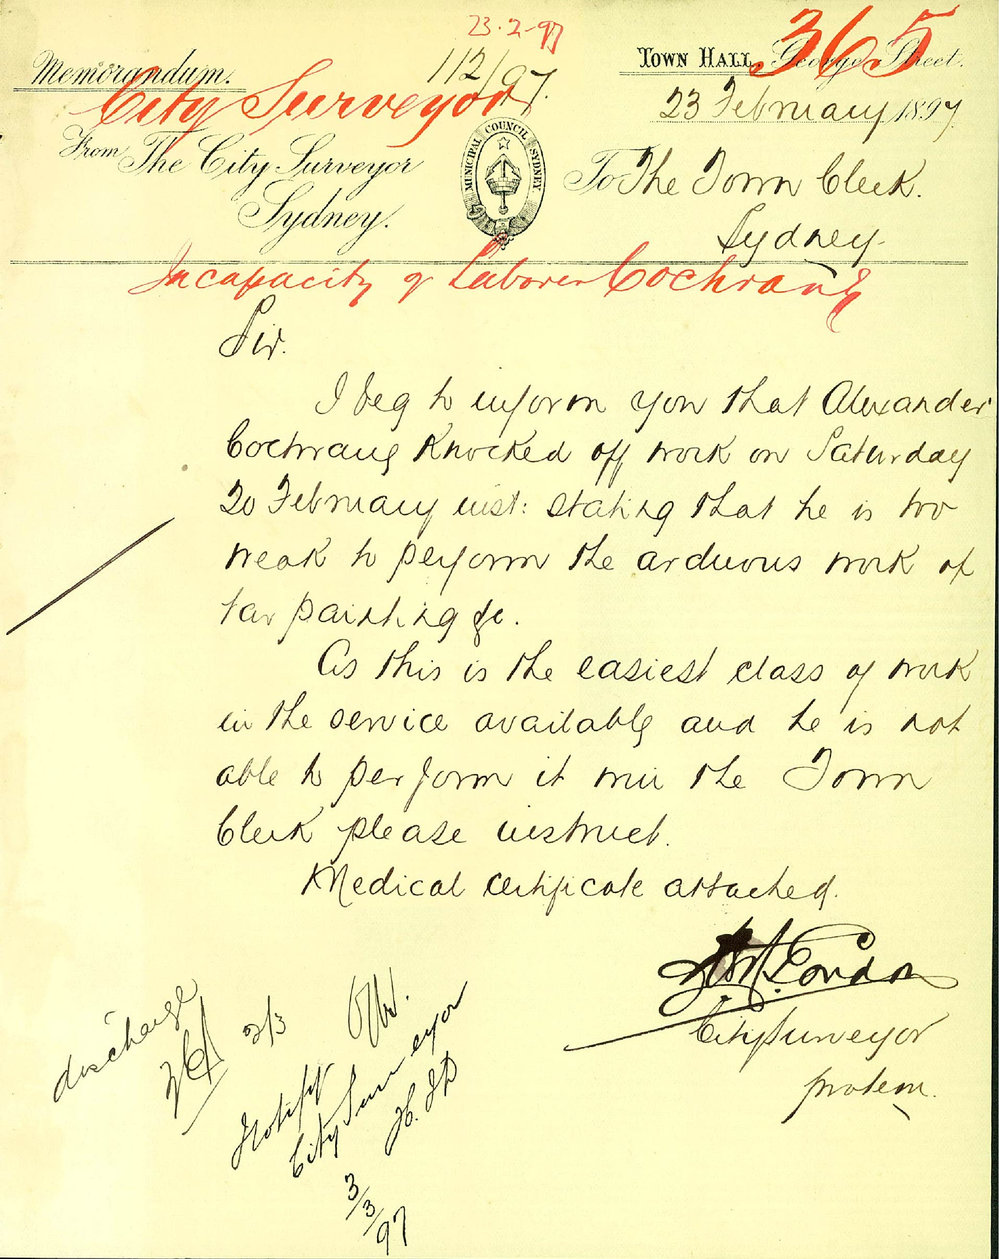 23.2.97
365
Memorandum.
112/97.
Town Hall, George Street.
City Surveyor
23 February 1897
From The City Surveyor
Sydney.
MUNICIPAL COUNCIL SYDNEY
To The Town Clerk.
Sydney.
Incapacity of Laborer Cochrane
Sir.
I beg to inform you that Alexander
Cochrane knocked off work on Saturday
20 February inst: stating that he is too
weak to perform the arduous work of
tar painting &c.
As this is the easiest class of work
in the service available and he is not
able to perform it will the Town
Clerk please instruct.
Medical certificate attached.
City Surveyor
protem.
discharge
2/3
Notify
City Surveyor
3/3/97